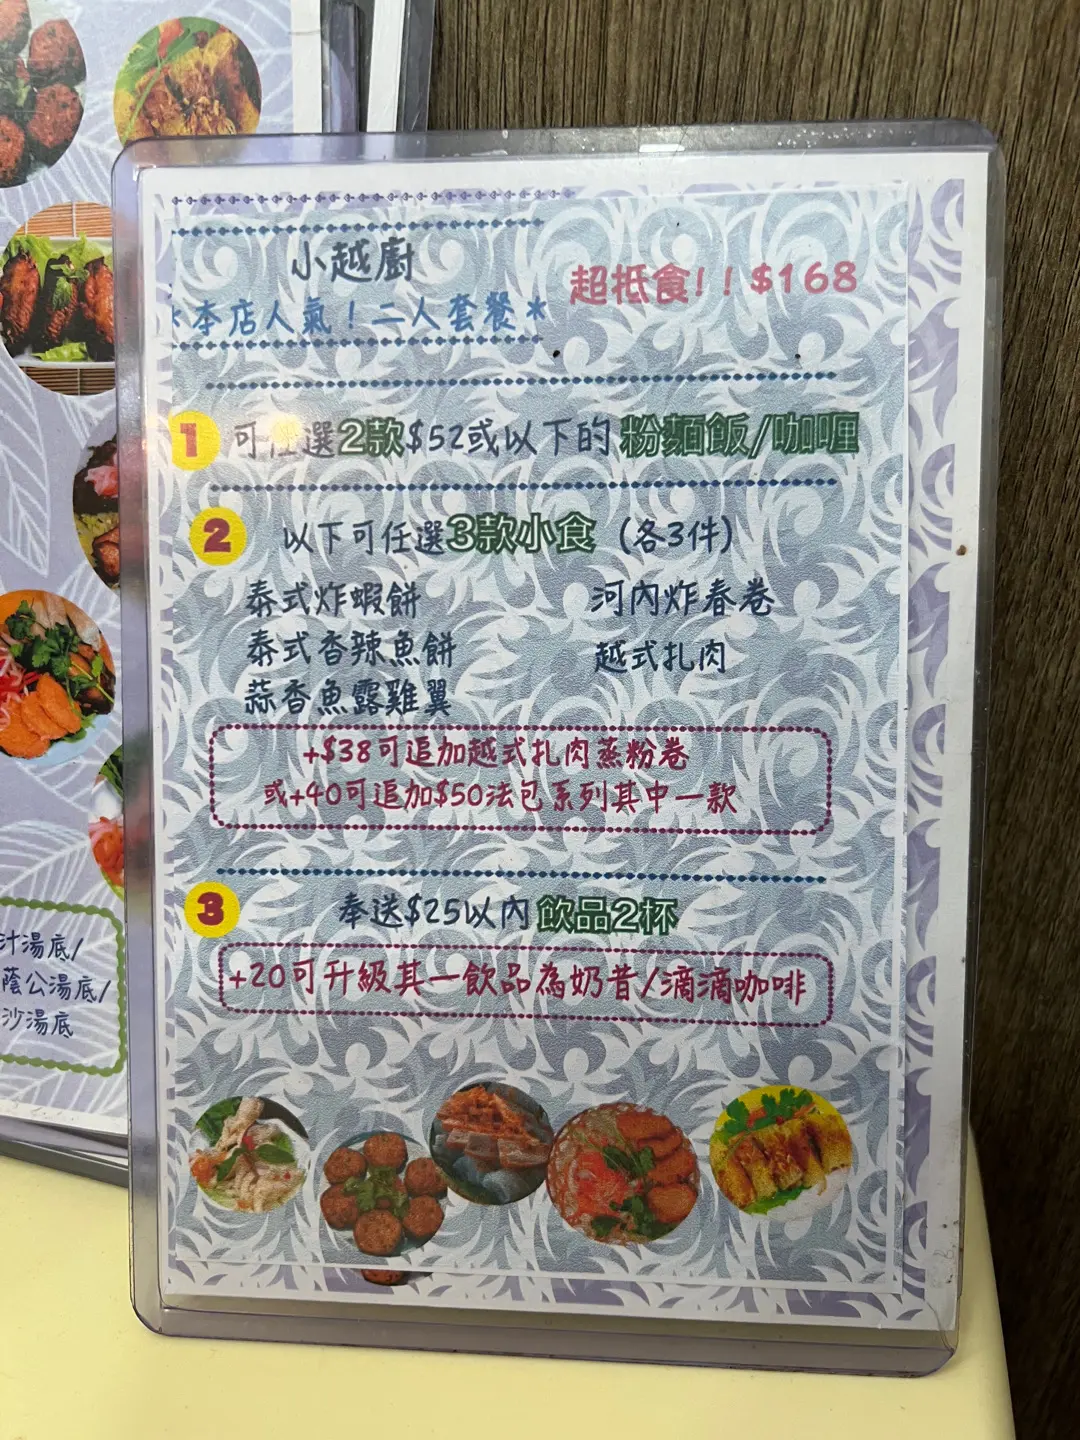 小越廚
*本店人氣！二人套餐*
超抵食!! $168
1 可任選2款$52或以下的 粉麵飯/咖喱
2 以下可任選3款小食 (各3件)
泰式炸蝦餅
河內炸春卷
泰式香辣魚餅
越式扎肉
蒜香魚露雞翼
+$38可追加越式扎肉蒸粉卷
或+40可追加$50法包系列其中一款
3 奉送$25以內 飲品2杯
+20可升級其一飲品為奶昔/滴滴咖啡
汁湯底/
蔭公湯底/
沙湯底